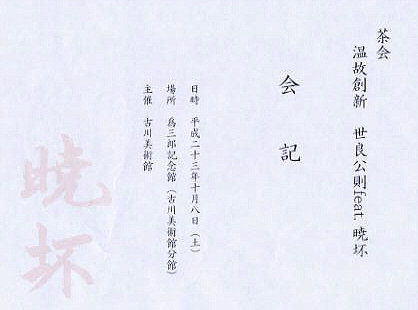 茶会
温故創新　世良公則feat.暁坏
会記
日時　平成二十三年十月八日（土）
場所　爲三郎記念館（古川美術館分館）
主催　古川美術館
暁坏